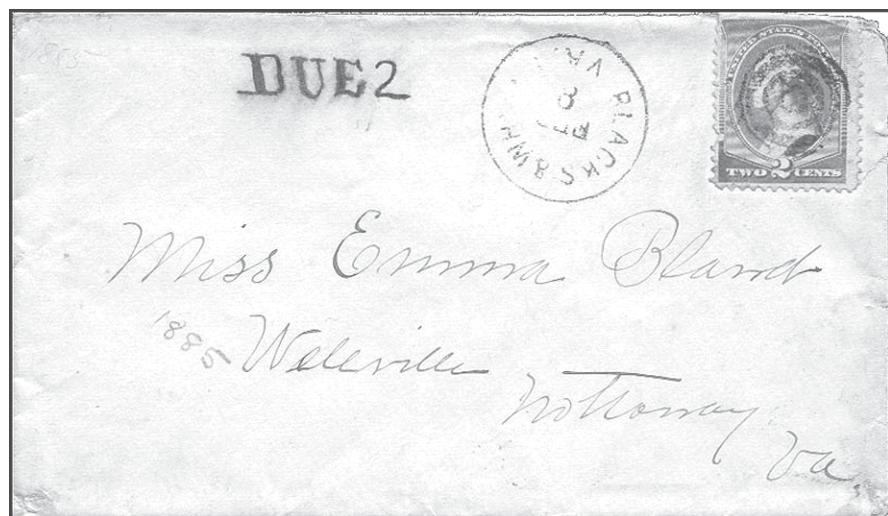 1885
DUE 2
VA. BLACKS &
UNITED STATES
TWO 2 CENTS
Miss Emma Bland
1885 Wellville
Nottoway
Va.